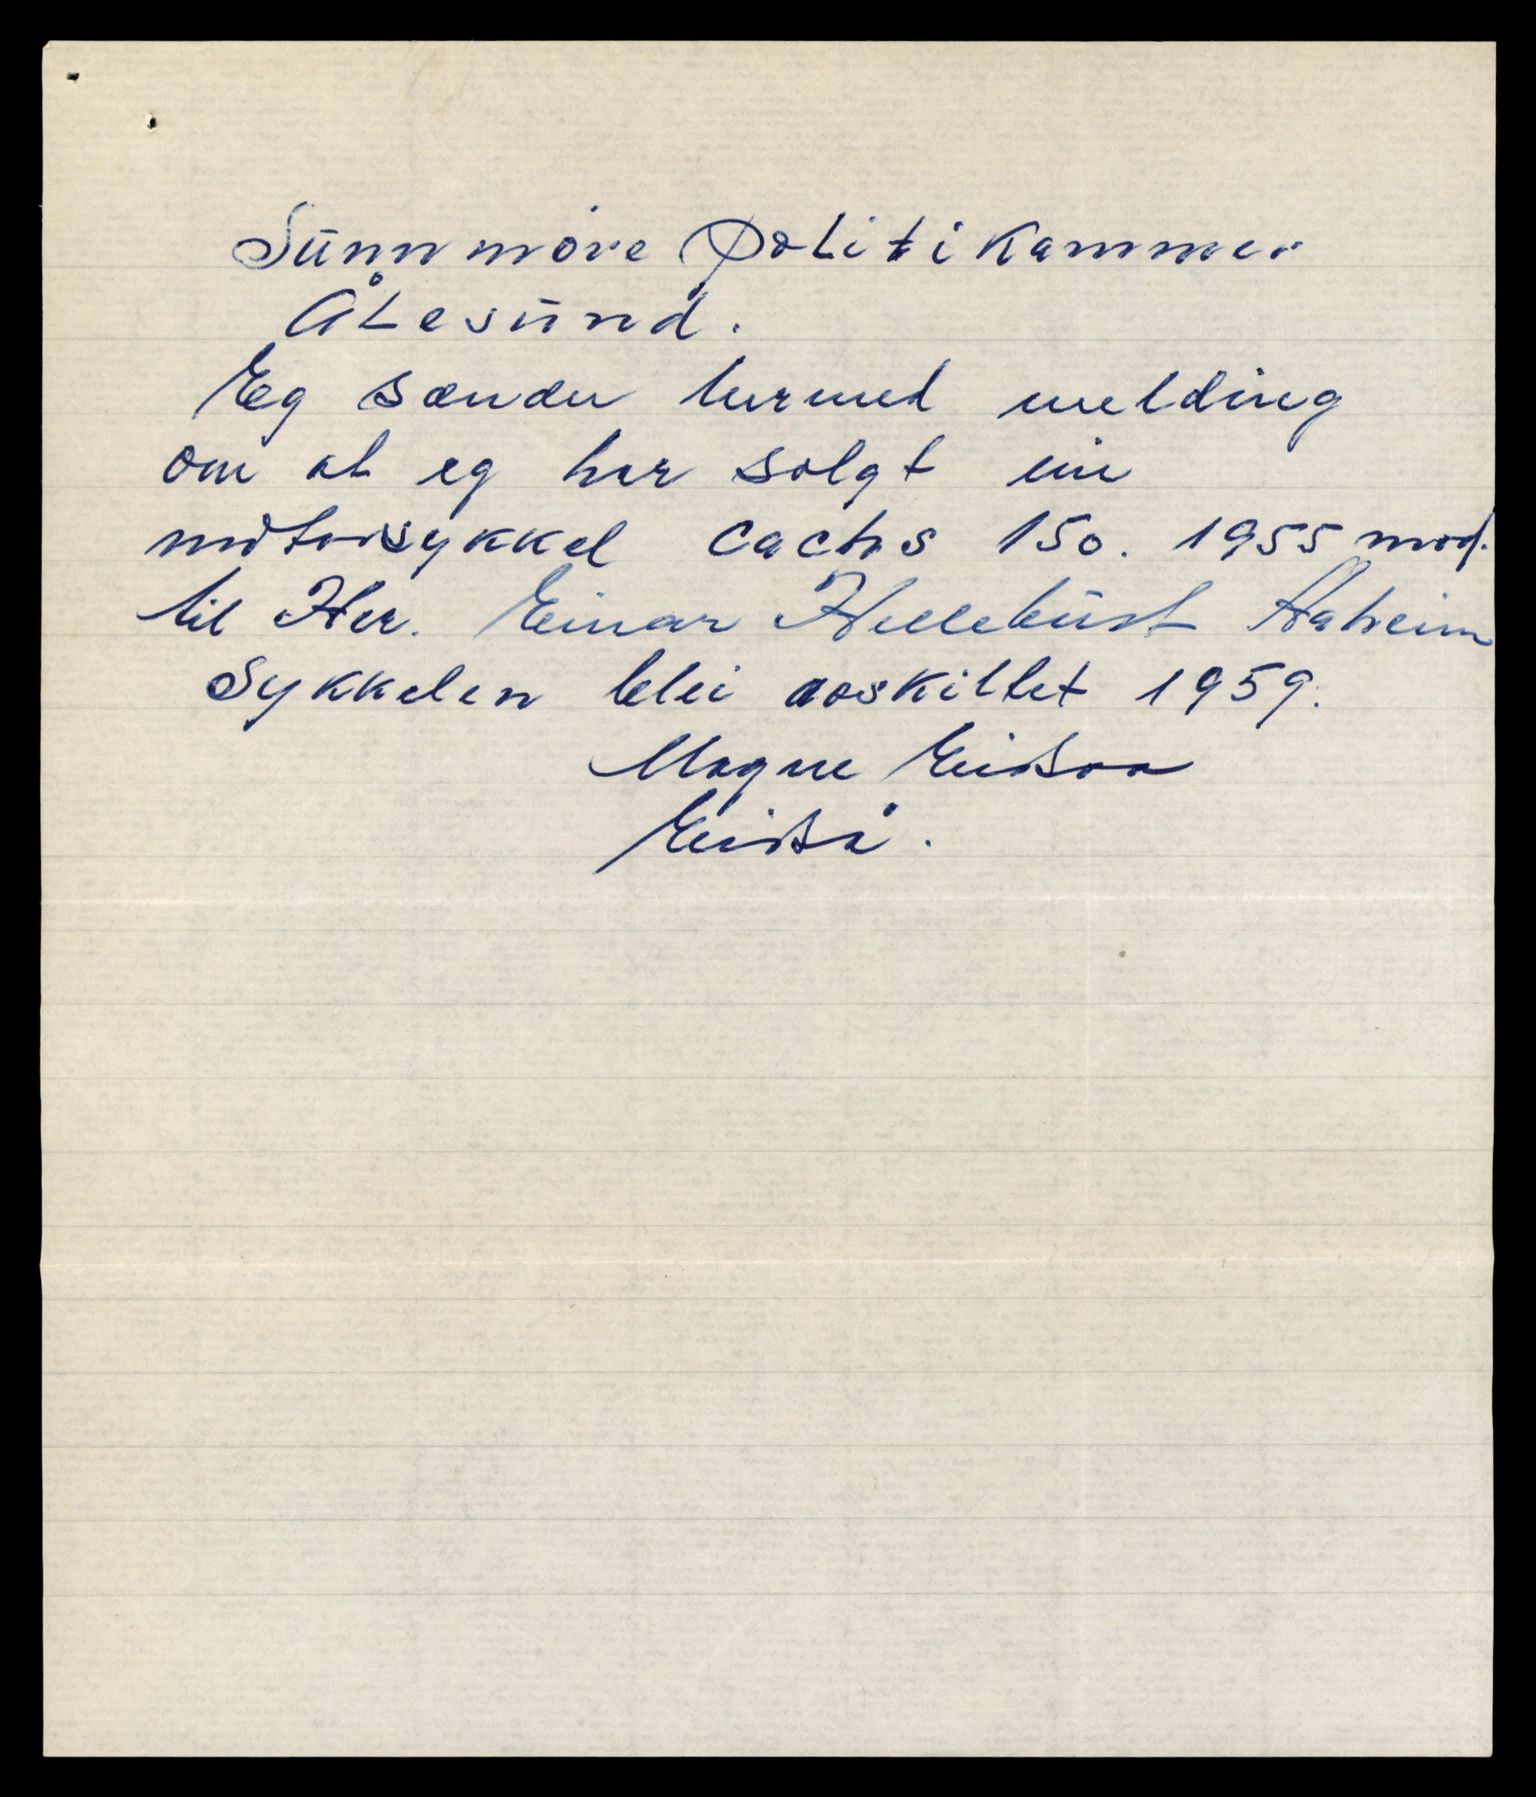 Sunnmøre Politikammer
Ålesund.
Eg sender hermed melding
om at eg har solgt ein
motorsykkel Cachs 150. 1955 mod.
til Her. Einar Hellebust Aaheim
Sykkelen blei avskiltet 1959.
Magne Eidsaa
Eidså.